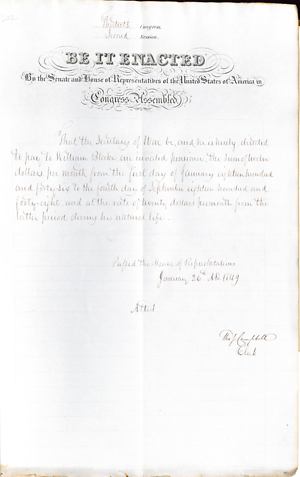 Thirtieth Congress
Second Session
BE IT ENACTED
By the Senate and House of Representatives of the United States of America in
Congress Assembled,
That the Secretary of War be, and he is hereby directed
to pay to William Blake an invalid pensioner, the sum of twelve
dollars per month from the first day of January eighteen hundred
and forty six to the fourth day of September eighteen hundred and
forty eight, and at the rate of twenty dollars per month from the
latter period during his natural life.
Passed the House of Representatives
January 26th 1849
Attest
Tho J Campbell
Clerk